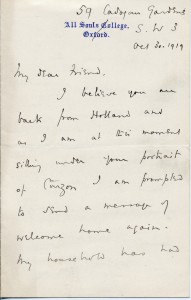 59 Cadogan Gardens
All Souls College,
Oxford.
S.W 3
Oct 30. 1919
My dear Friend.
I believe you are
back from Holland and
as I am at this moment
sitting under your portrait
of Curzon I am prompted
to send a message of
welcome home again.
My household has had